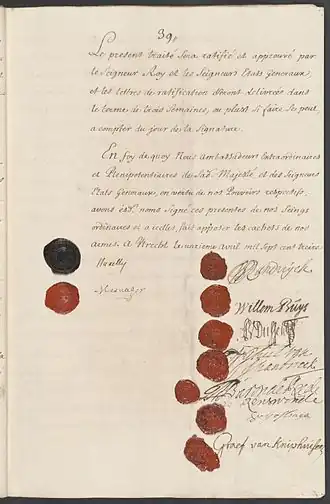 39.
Le present traité Sera ratifié et approuvé par
le Seigneur Roy et les Seigneurs Etats Generaux,
et les lettres de ratification seront delivrées dans
le terme de trois Semaines, ou plustost si faire se peut,
a compter du jour de la Signature.
En foy de quoy Nous Ambassadeurs Extraordinaires
et Plenipotentiaires de Sad. Majesté, et des Seigneurs
Etats Generaux, en vertu de nos Pouvoirs respectifs,
avons esd. noms Signé ces presentes de nos Seings
ordinaires et a icelles, fait apposer les cachets de nos
armes, à Utrecht le onzieme avril mil Sept cent treize.
Huxelles
Mesnager
Randwyck
Willem Buys
Graef van Kniphuisen